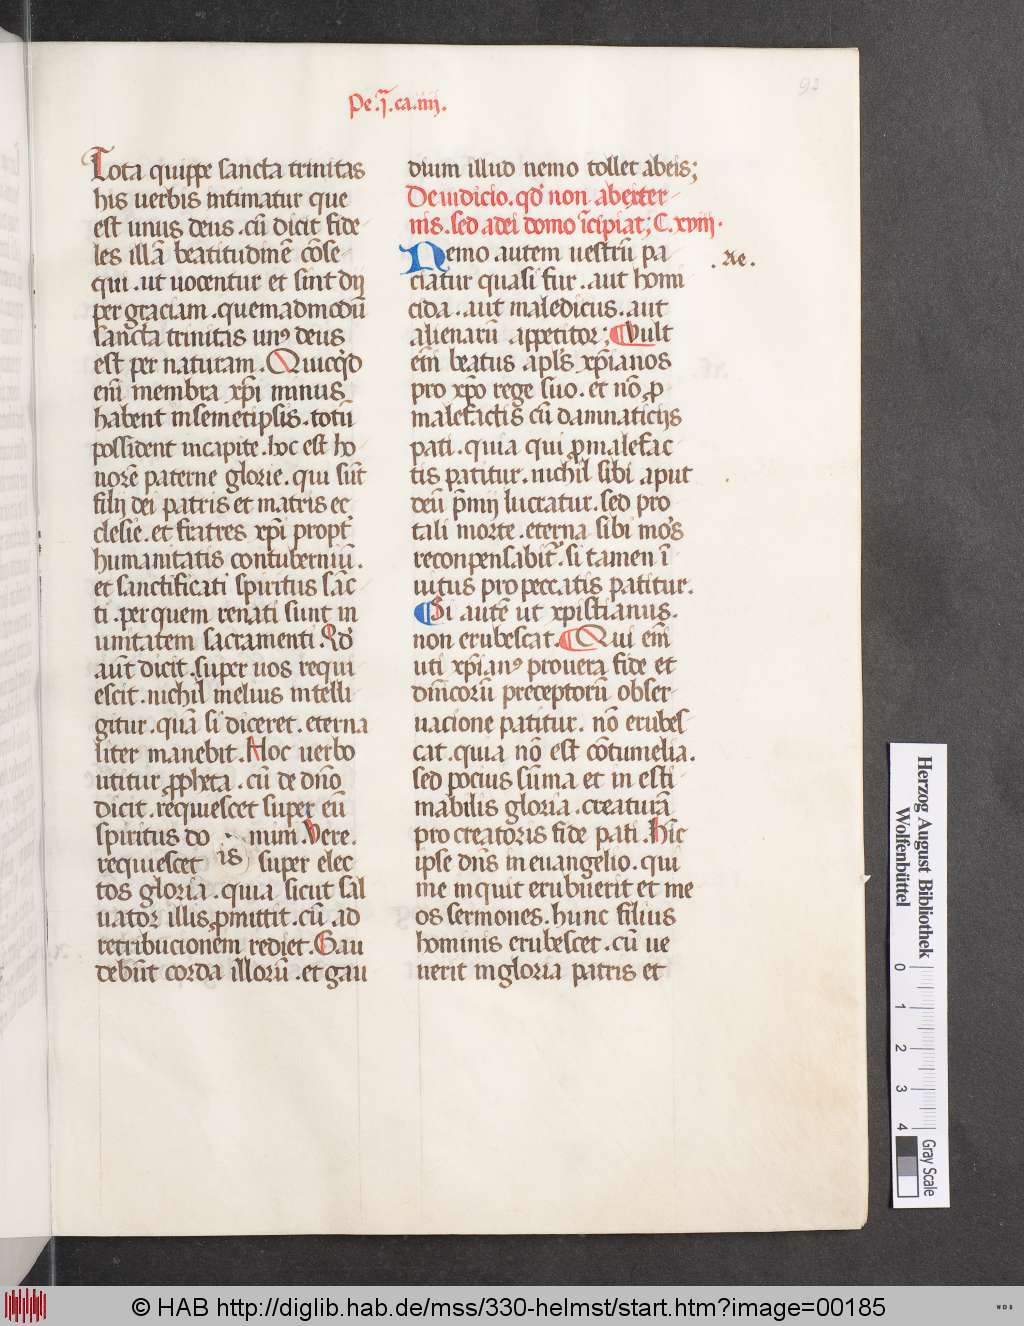 92
Pe.ı̄.ca.iiij.
Tota quippe sancta trinitas
his uerbis intimatur que
est unus deus. cū dicit fide
les illā beatitudinē cōse
qui. ut uocentur et sint dij
per graciam. quemadmodū
sancta trinitas unꝰ deus
est per naturam. Quicq̇d
eni̅ membra xp̄i minus
habent in semetipsis. totū
possident in capite. hoc est ho
norē paterne glorie. qui sūt
filij dei patris et matris ec
clesie. et fratres xp̄i propt̄
humanitatis contuberniū.
et sanctificati spiritus sāc
ti. per quem renati sunt in
unitatem sacramenti. Qd̄
aūt dicit. super uos requi
escit. nichil melius intelli
gitur. quā si diceret. eterna
liter manebit. Hoc uerbo
utitur ꝓpheta. cū de dn̄o
dicit. requiescet super eū
spiritus do mini. Vere.
requiescet is super elec
tos gloria. quia sicut sal
uator illis ꝓmittit. cū ad
retribucionem rediet. Gau
debūt corda illorū. et gau
dium illud nemo tollet abeis;
De iudicio. qd̄ non ab exter
nis. sed a dei domo īcipiat; C. xviij.
Nemo autem uestrū pa
.Ae.
ciatur quasi fur. aut homi
cida. aut maledicus. aut
alienarū appetitor; Vult
eni̅ beatus apl̄s xp̄ianos
pro xp̄o rege suo. et nō ꝓ
malefactis cū damnaticijs
pati. quia qui ꝓ malefac
tis patitur. nichil sibi aput
deū p̄mij lucratur. sed pro
tali morte. eterna sibi mors
reconpensabit̄. si tamen ī
uitus pro peccatis patitur.
Si autē ut xpistianus.
non erubescat. Qui eni̅
uti xp̄ianꝰ pro uera fide et
dn̄icorū preceptorū obser
uacione patitur. nō erubes
cat. quia nō est cōtumelia.
sed pocius sūma et in esti
mabilis gloria. creaturā
pro creatoris fide pati. Hīc
ipse dn̄s in euangelio. qui
me inquit erubuerit et me
os sermones. hunc filius
hominis erubescet. cū ue
nerit in gloria patris et
Herzog August Bibliothek
Wolfenbüttel
0 1 2 3 4
Gray Scale
© HAB http://diglib.hab.de/mss/330-helmst/start.htm?image=00185